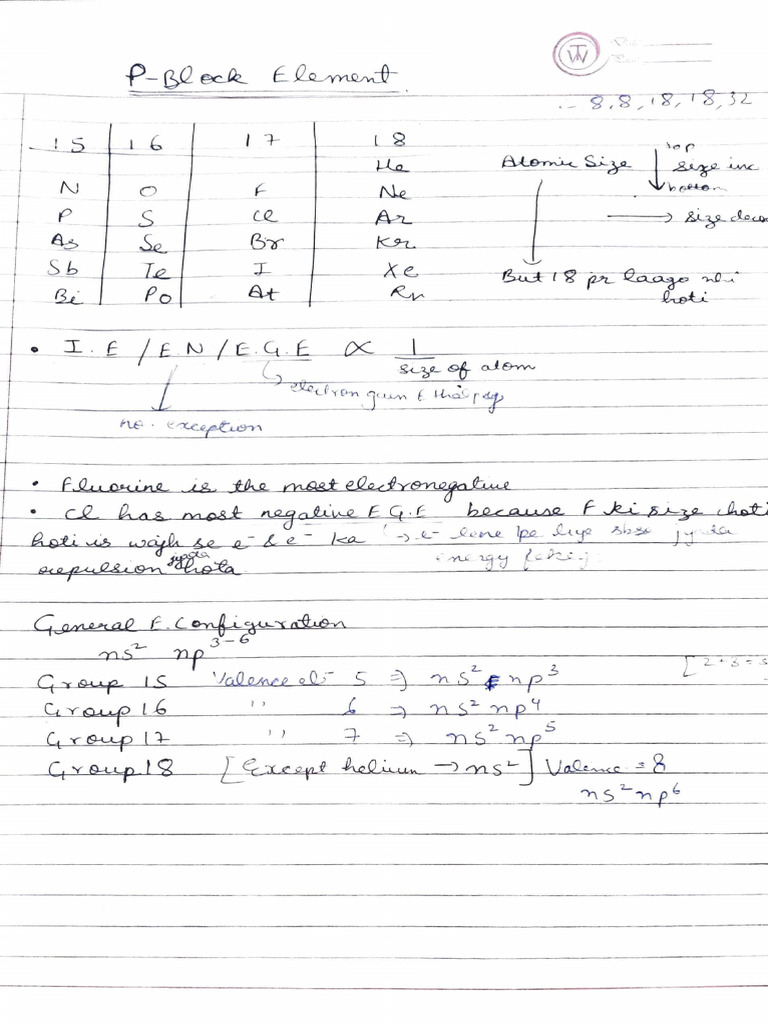 P-Block Element
:- 8,8,18,18,32
15 16 17 18
He
N O F Ne
P S Cl Ar
As Se Br Kr
Sb Te I Xe
Bi Po At Rn
Atomic Size
top
size inc
bottom
→ size decr
But 18 pr laago nhi
hoti
• I.E / E.N / E.G.E ∝ 1
size of atom
electron gain E
no. exception
• Fluorine is the most electronegative
• Cl has most negative E.G.E because F ki size choti
hoti is wajh se e⁻ & e⁻ ka → e⁻ lene
repulsion jyada hota energy
General E. Configuration
ns² np³⁻⁶
[2+3=5
Group 15 Valence el⁻ 5 ⇒ ns² np³
Group 16 " 6 ⇒ ns² np⁴
Group 17 " 7 ⇒ ns² np⁵
Group 18 [Except helium → ns²] Valence = 8
ns² np⁶